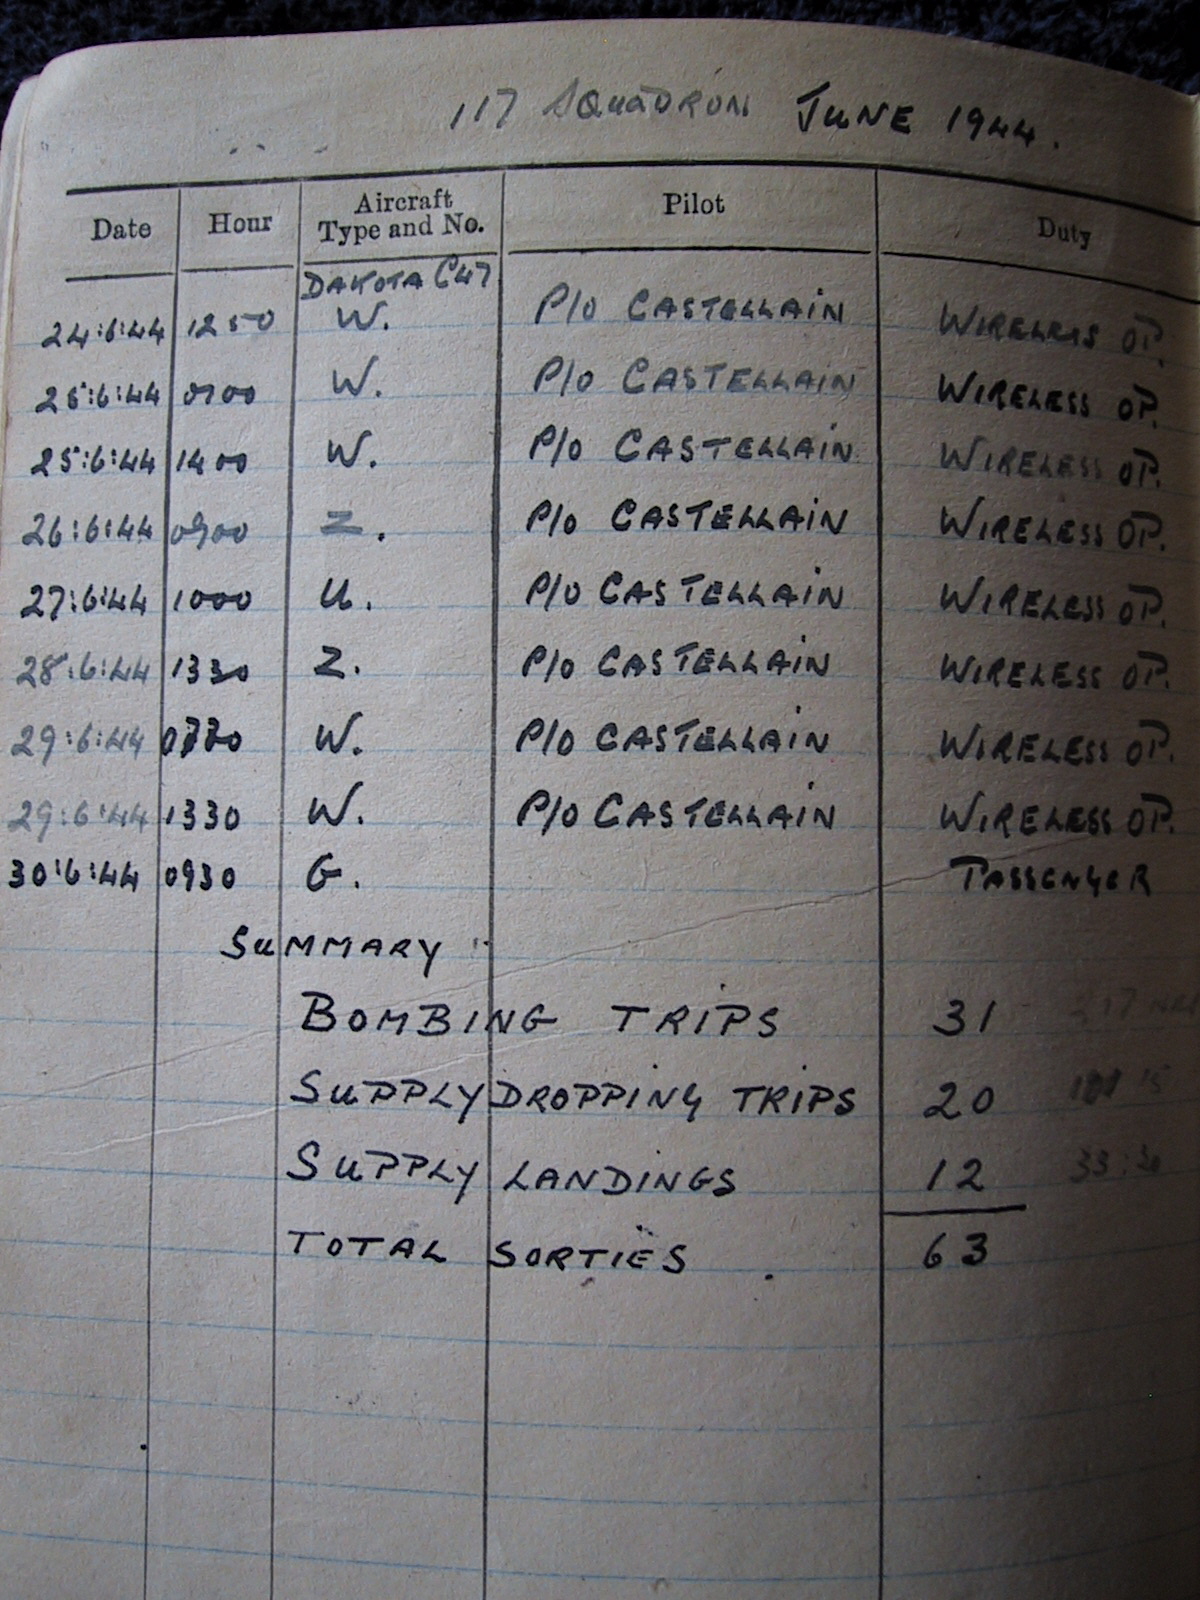 117 SQUADRON JUNE 1944.
Date Hour Aircraft Type and No. Pilot Duty
DAKOTA C47
24:6:44 1250 W. P/O CASTELLAIN WIRELESS OP.
25:6:44 0700 W. P/O CASTELLAIN WIRELESS OP.
25:6:44 1400 W. P/O CASTELLAIN WIRELESS OP.
26:6:44 0900 Z. P/O CASTELLAIN WIRELESS OP.
27:6:44 1000 U. P/O CASTELLAIN WIRELESS OP.
28:6:44 1330 Z. P/O CASTELLAIN WIRELESS OP.
29:6:44 W. P/O CASTELLAIN WIRELESS OP.
29:6:44 1330 W. P/O CASTELLAIN WIRELESS OP.
30:6:44 0930 G. PASSENGER
SUMMARY
BOMBING TRIPS 31
SUPPLY DROPPING TRIPS 20
SUPPLY LANDINGS 12
TOTAL SORTIES 63